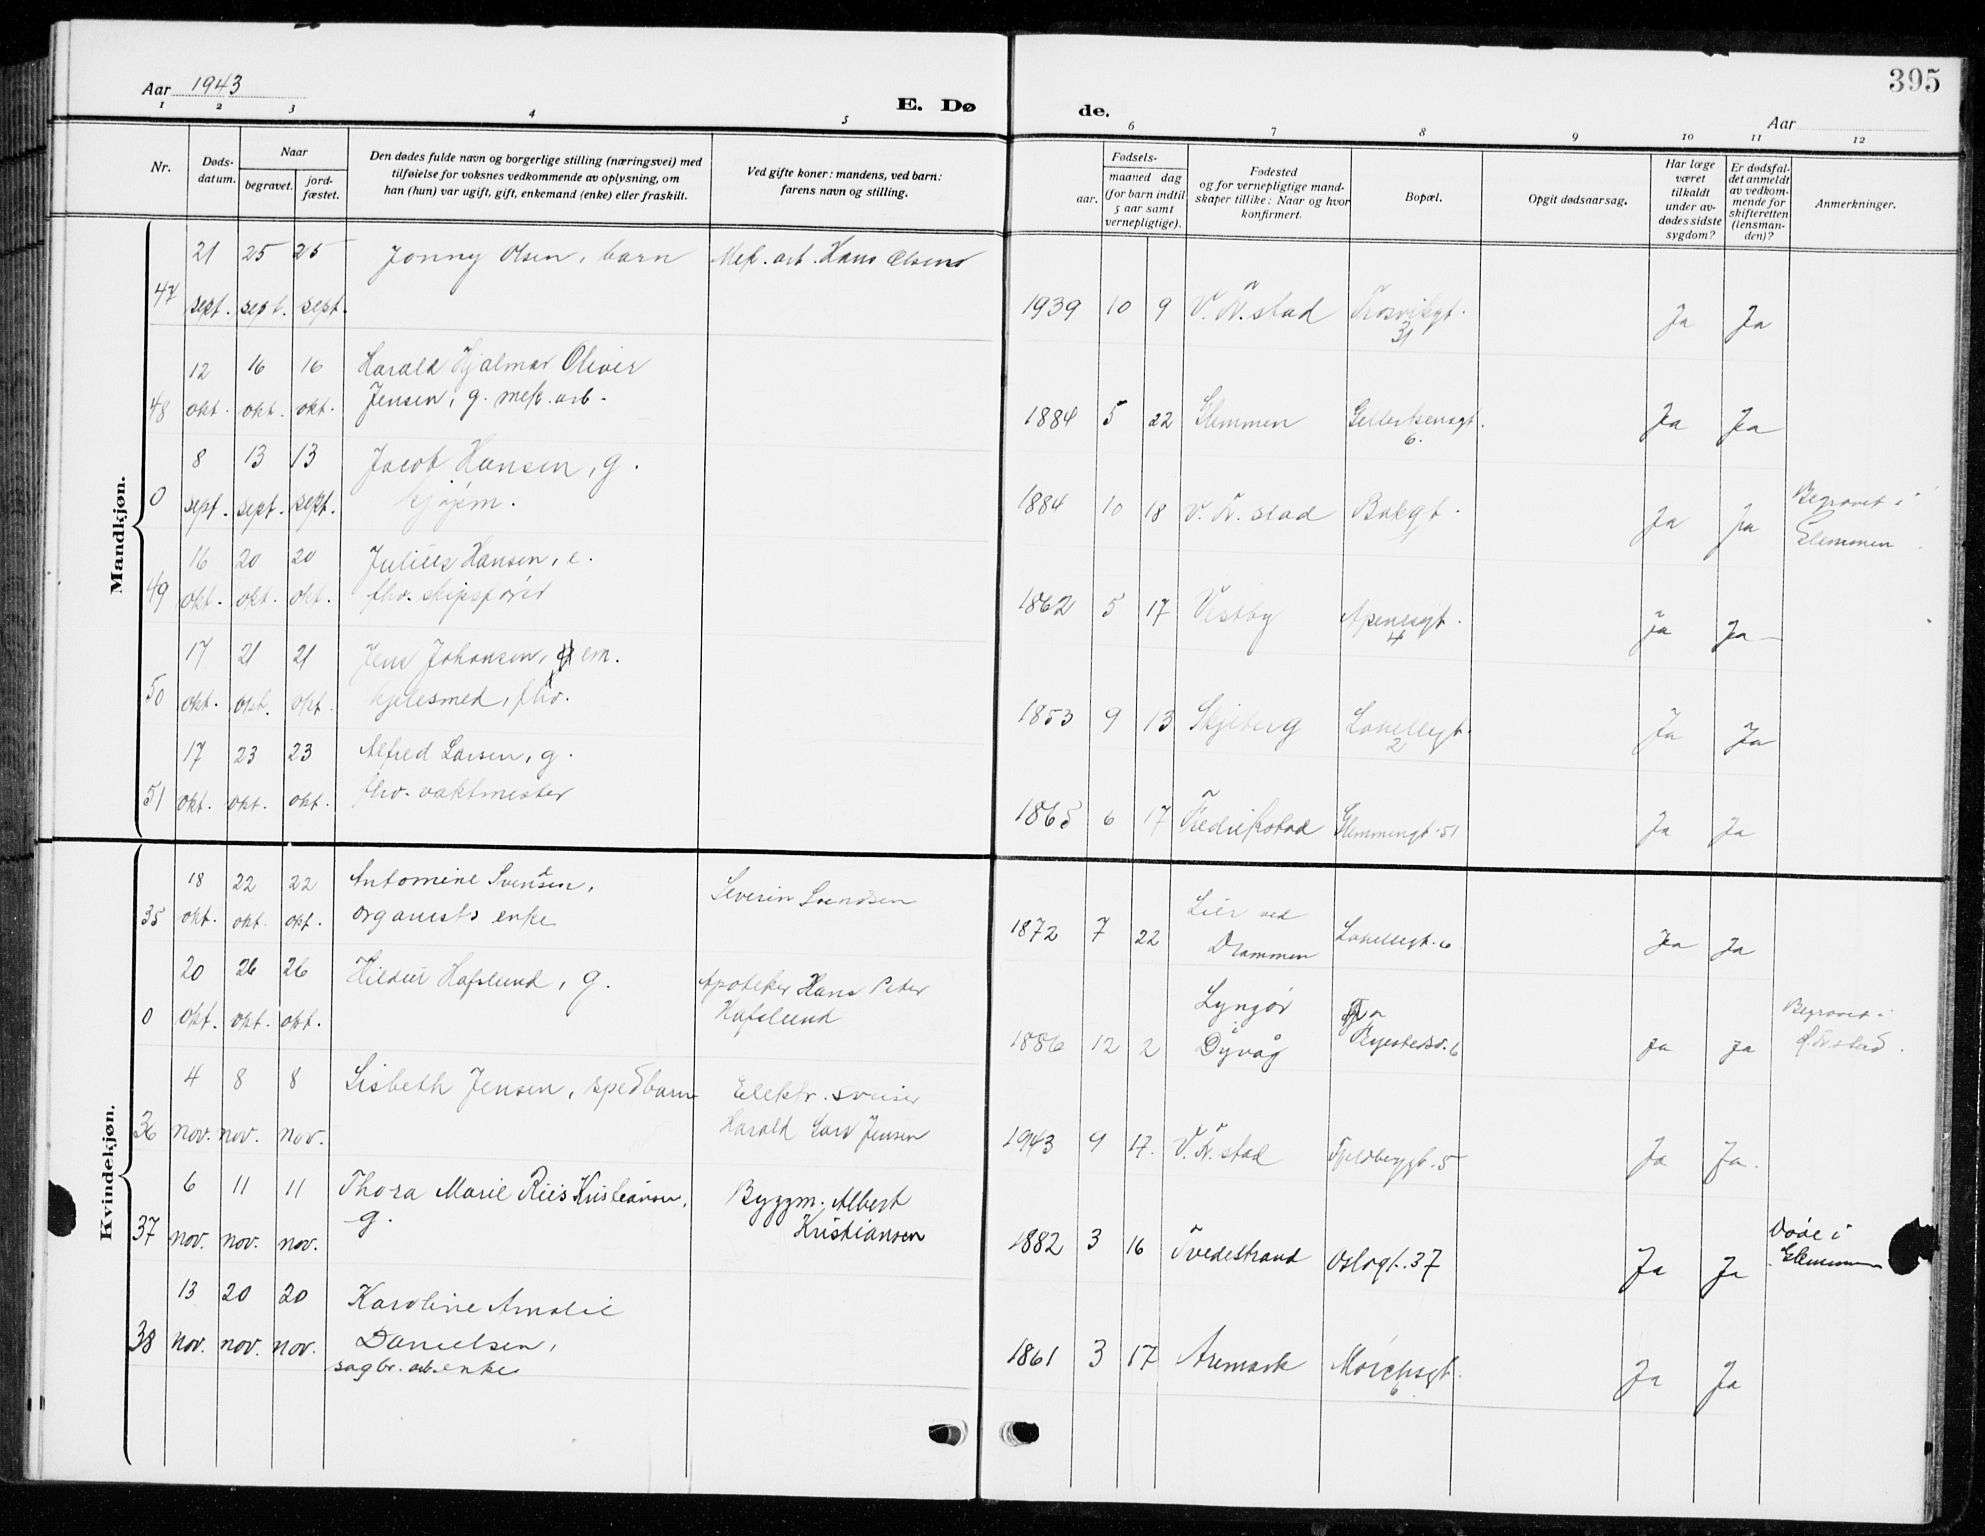 395
Aar 1943
E. Dø
de.
Aar
1 2 3 4 5 6 7 8 9 10 11 12
Nr.
Døds-
datum.
Naar
begravet.
jord-
fæstet.
Den dødes fulde navn og borgerlige stilling (næringsvei) med
tilføielse for voksnes vedkommende av oplysning, om
han (hun) var ugift, gift, enkemand (enke) eller fraskilt.
Ved gifte koner: mandens, ved barn:
farens navn og stilling.
Fødsels-
aar.
maaned dag
(for barn indtil
5 aar samt
vernepligtige).
Fødested
og for vernepligtige mand-
skaper tillike: Naar og hvor
konfirmert.
Bopæl.
Opgit dødsaarsag.
Har læge
været
tilkaldt
under av-
dødes sidste
sygdom?
Er dødsfal-
det anmeldt
av vedkom-
mende for
skifteretten
(lensman-
den)?
Anmerkninger.
Mandkjøn.
47 21 sept. 25 sept. 25 sept. Jonny Olsen, barn Mek. arb. Hans Olsen 1939 10 9 V. Fr.stad Trosvikgt. 31 Ja Ja
48 12 okt. 16 okt. 16 okt. Harald Hjalmar Oliver
Jensen, g. mek. arb. 1884 5 22 Glemmen Gellertsensgt. 6. Ja Ja
0 8 sept. 13 sept. 13 sept. Jacob Hansen, g. 1884 10 18 V. Fr.stad Bakgt. Ja Ja Begravet i
Glemmen
49 16 okt. 20 okt. 20 okt. Julius Hansen, e.
fhv. skipsfører 1862 5 17 Vestby Apenesgt. 4 Ja Ja
50 17 okt. 21 okt. 21 okt. Jens Johansen, em.
kjelesmed, fhv. 1853 9 13 Skjeberg Lahellegt. 2 Ja Ja
51 17 okt. 23 okt. 23 okt. Alfred Larsen, g.
fhv. vaktmester 1865 6 17 Fredrikstad Glemmengt. 51 Ja Ja
Kvindekjøn.
35 18 okt. 22 okt. 22 okt. Antomine Svensen,
organists enke Severin Svendsen 1872 7 22 Lier ved
Drammen Lahellegt. 6 Ja Ja
0 20 okt. 26 okt. 26 okt. Hildur Hafslund, g. Apoteker Hans Peter
Hafslund 1886 12 2 Lyngør
Dyvåg 6 Ja Ja Begravet i
Ø. Fr.stad.
36 4 nov. 8 nov. 8 nov. Lisbeth Jensen, spedbarn Elektr. sveiser
Harald Jensen 1943 9 17. V. Fr.stad Fjeldberggt. 5 Ja Ja.
37 6 nov. 11 nov. 11 nov. Thora Marie Riis Kristiansen,
g. Byggm. Albert
Kristiansen 1882 3 16 Tvedestrand Oslogt. 37 Ja Ja Døde i
Glemmen
38 13 nov. 20 nov. 20 nov. Karoline Amalie
Danielsen,
sagbr. arb. enke 1861 3 17 Aremark Mørchsgt. 6 Ja Ja